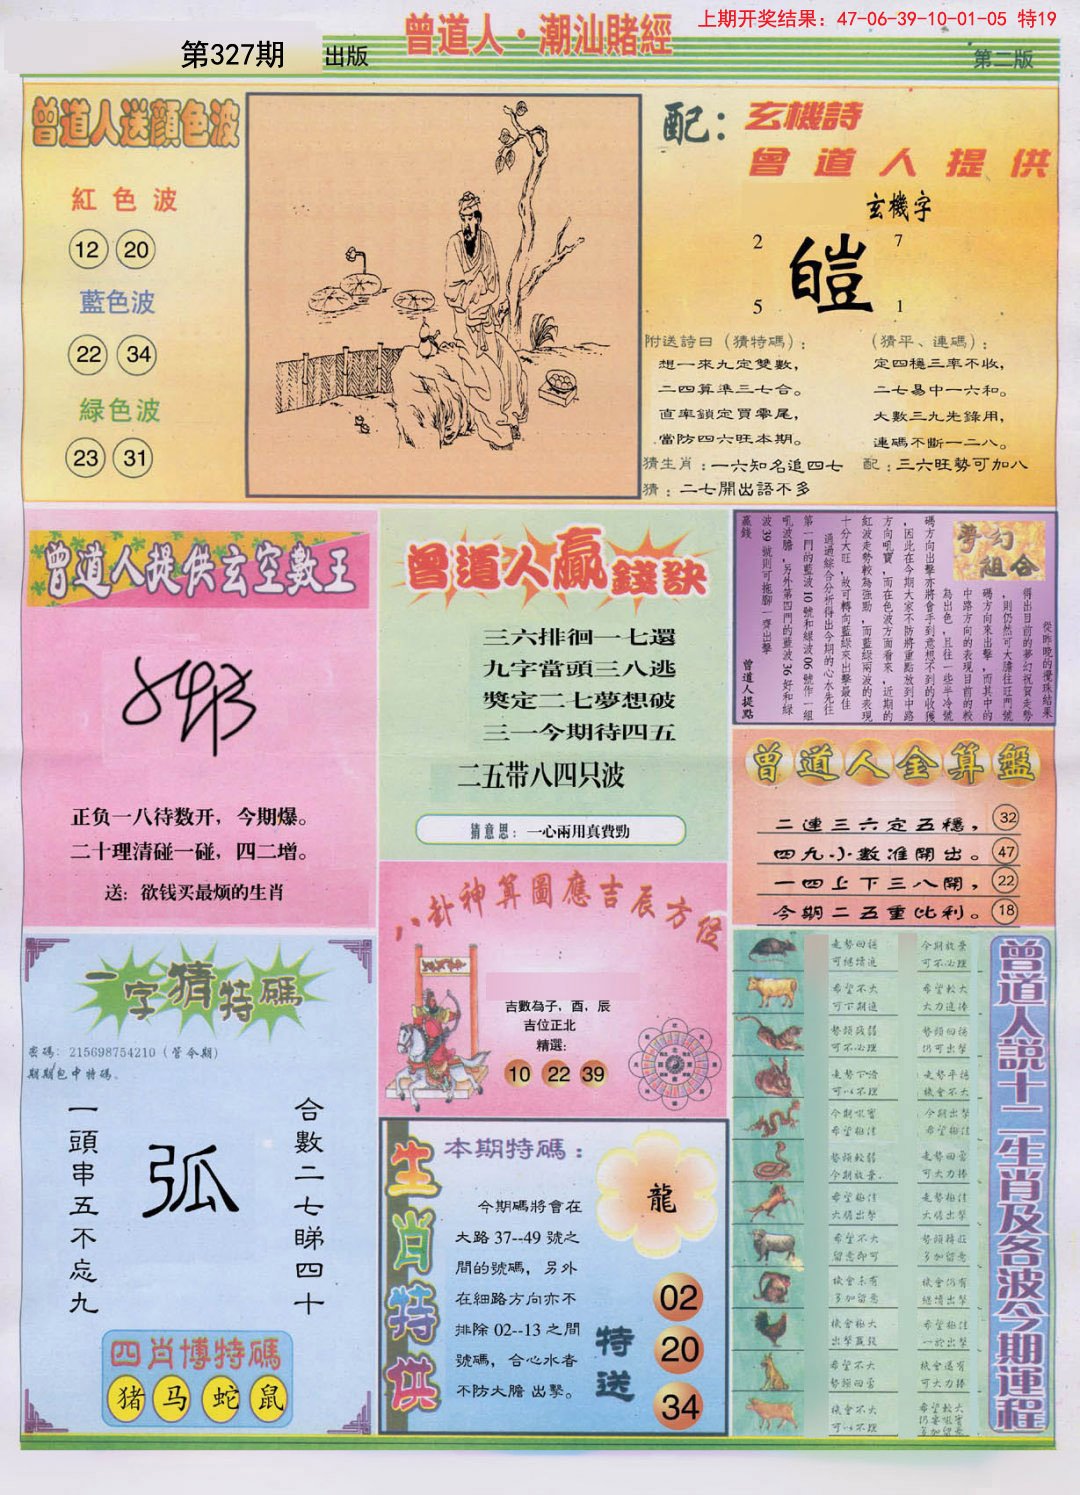 上期开奖结果：47-06-39-10-01-05 特19
曾道人·潮汕賭經
第327期 出版
第二版
曾道人送顏色波
紅色波
12 20
藍色波
22 34
緑色波
23 31
配：玄機詩
曾道人提供
玄機字
2 7
皚
5 1
附送詩曰（猜特碼）；
想一來九定雙數，
二四算準三七合。
直率鎖定買零尾，
當防四六旺本期。
（猜平、連碼）；
定四穩三率不收，
二七易中一六和。
大數三九先錄用，
連碼不斷一二八。
猜生肖：一六知名追四七
配：三六旺勢可加八
猜：二七開出語不多
曾道人提供玄空數王
正负一八待数开，今期爆。
二十理清碰一碰，四二增。
送：欲钱买最烦的生肖
曾道人贏錢訣
三六排徊一七還
九字當頭三八逃
獎定二七夢想破
三一今期待四五
二五带八四只波
猜意思：一心兩用真費勁
夢幻組合
從昨晚的攪珠結果
得出目前的夢幻祝賀走勢
，則仍然可大膽往旺門號
碼方向來出擊，而其中的
中路方向的表現目前的較
為出色，且往一些半冷號
碼方向出擊亦將會手到意想不到的收獲
，因此在今期大家不防將重點放到中路
方向吼寶，而在色波方面看來，近期的
紅波走勢較為強勁，而藍綠兩波的表現
十分大旺，故可轉向藍綠來出擊最佳
。通過綜合分析得出今期的心水先往
第一門的藍波10號和綠波06號作一組
吼波膽，另外第四門的藍波36好和綠
波39號則可拖腳一齊出擊
贏錢
曾道人提點
曾道人金算盤
二連三六定五穩， 32
四九小數准開出。 47
一四上下三八開， 22
今期二五重比利。 18
八卦神算圖應吉辰方位
吉數為子，酉，辰
吉位正北
精選：
10 22 39
一字猜特碼
密碼：215698754210（管令期）
期期包中特碼、
一頭串五不忘九
弧
合數二七睇四十
四肖博特碼
猪 马 蛇 鼠
生肖特供
本期特碼：
今期碼將會在
大路37--49號之
間的號碼，另外
在細路方向亦不
排除02--13之間
號碼，合心水者
不防大膽出擊。
龍
特送
02
20
34
曾道人說十二生肖及各波今期運程
走勢回穩
可繼續追
今期放棄
可不必理
希望不大
可下期追
希望較大
大力追捧
勢頭段弱
可不必理
勢頭回穩
仍可出擊
走勢下滑
可以不理
走勢平穩
機會不大
今期吼寶
希望極佳
今期出擊
希望極佳
勢頭較弱
今期放棄、
走勢回勇
可大力捧
希望極佳
大膽出擊
走勢極佳
大膽出擊
希望不大
留意即可
勢頭轉旺
多加留意
機會未有
多加留意
機會仍有
繼續出擊
機會極大
出擊贏錢
希望極佳
一於出擊
希望不大
勢頭回勇
機會還有
可大力捧
機會不大
可以不理
希望較大
仍要吼實
多加留意